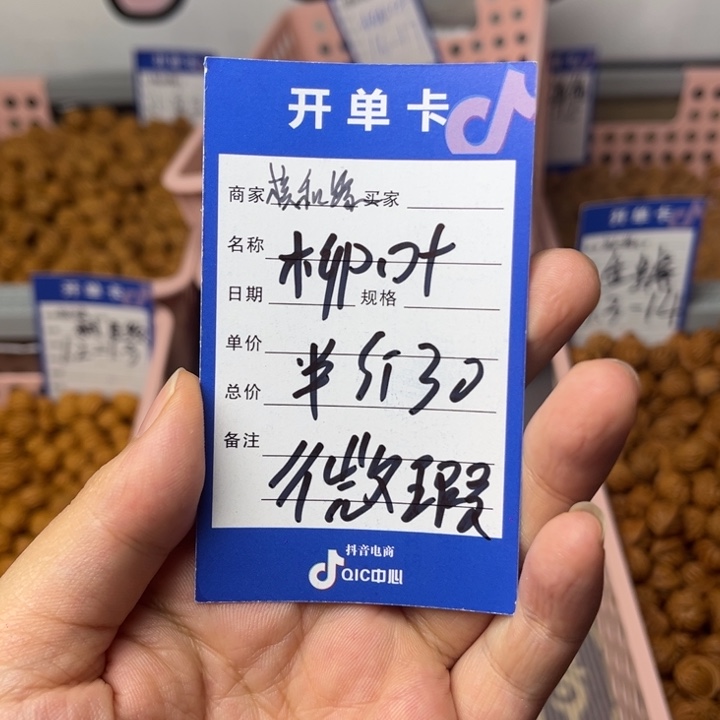 开单卡
商家 买家
名称 柳叶
日期 规格
单价
半斤30
总价
备注
微瑕
抖音电商
QIC中心
开单卡
3-14
开单卡
12-13